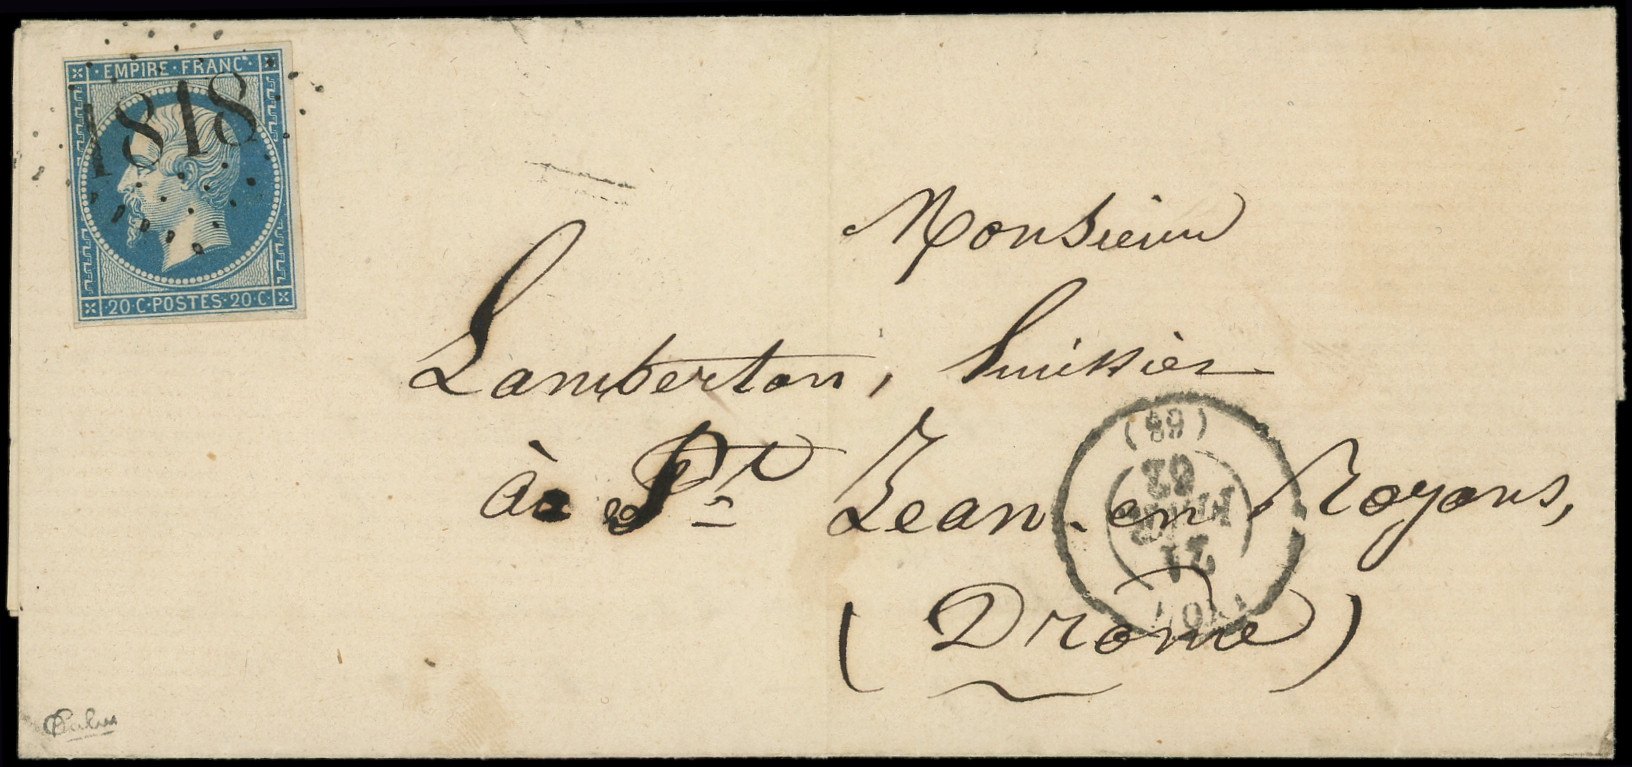 EMPIRE · FRANC ·
1818
20 · C · POSTES · 20 · C ·
Monsieur
Lamberton, huissier
à St Jean-en-Royans,
(Drome)
(68)
62
21